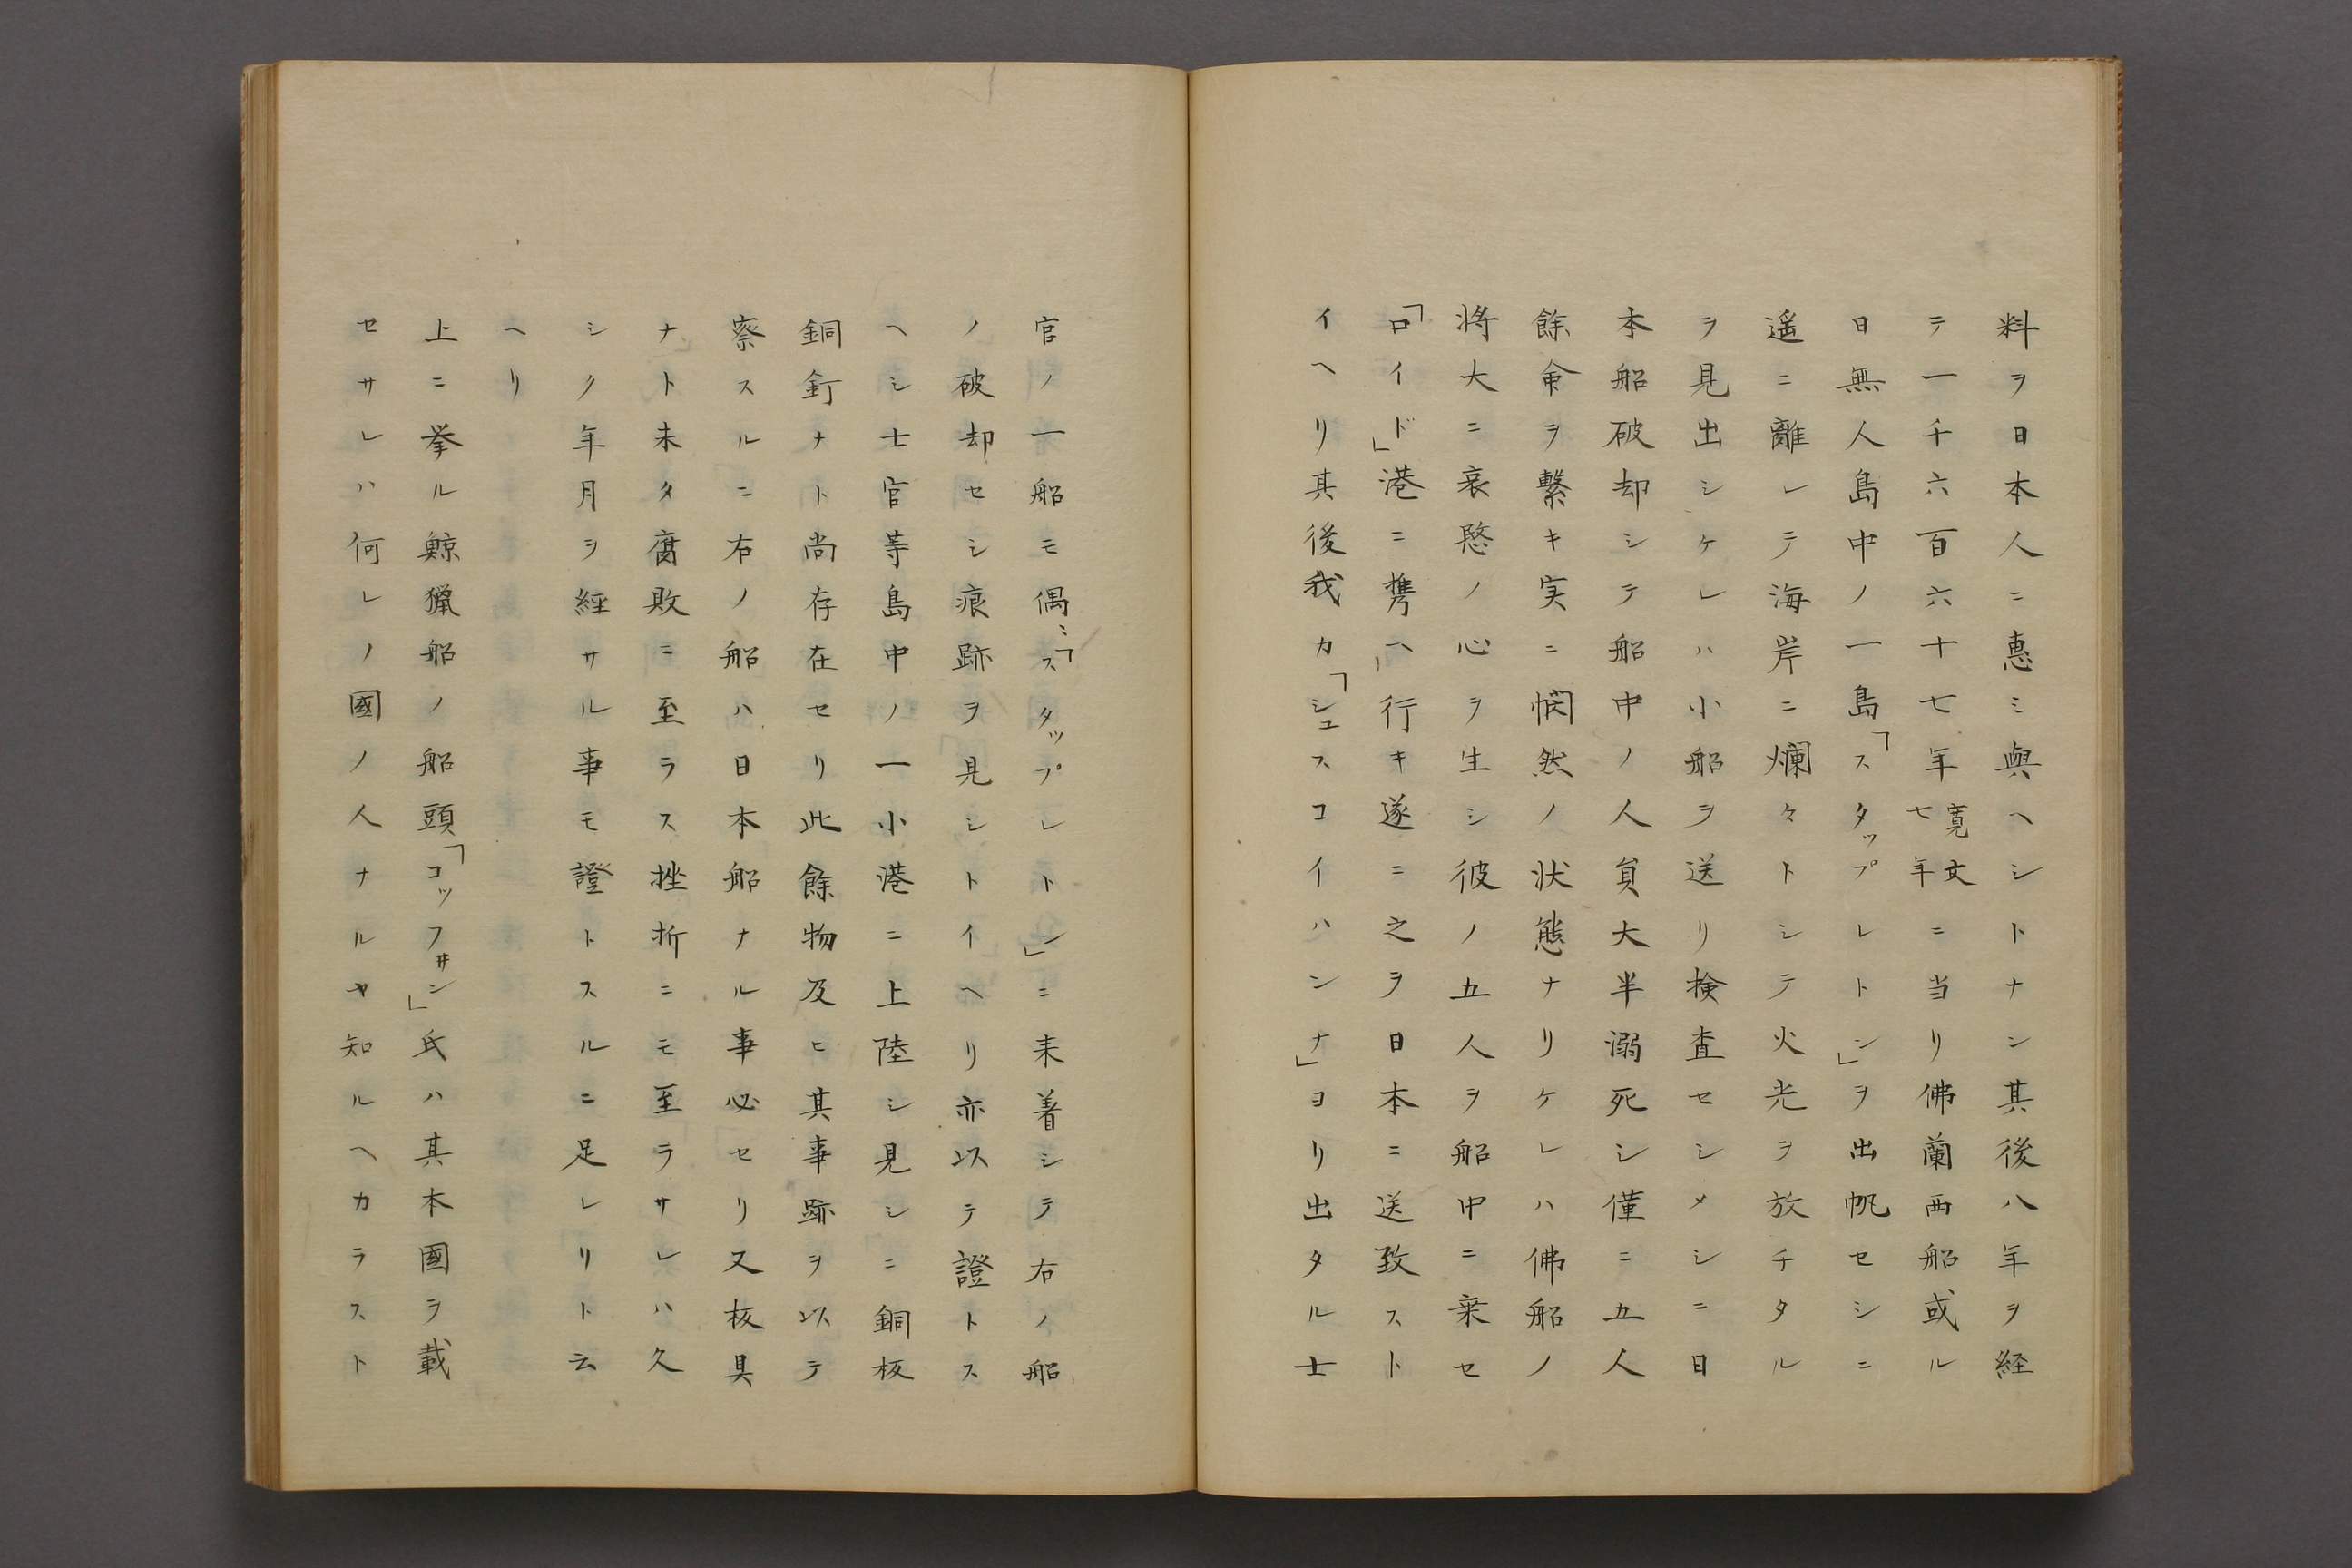 料ヲ日本人ニ惠ミ與ヘシトナン其後八年ヲ経
テ一千六百六十七年寛文七年ニ当リ佛蘭西船或ル
日無人島中ノ一島「スタップレトン」ヲ出帆セシニ
遥ニ離レテ海岸ニ爛々トシテ火光ヲ放チタル
ヲ見出シケレハ小船ヲ送リ検査セシメシニ日
本船破却シテ船中ノ人員大半溺死シ僅ニ五人
餘命ヲ繋キ実ニ悯然ノ状態ナリケレハ佛船ノ
将大ニ哀愍ノ心ヲ生シ彼ノ五人ヲ船中ニ乗セ
「ロイド」港ニ携ヘ行キ遂ニ之ヲ日本ニ送致スト
イヘリ其後我カ「シュスコイハンナ」ヨリ出タル士
官ノ一船モ偶ミ「スタップレトン」ニ来着シテ右ノ船
ノ破却セシ痕跡ヲ見シトイヘリ亦以テ證トス
ヘシ士官等島中ノ一小港ニ上陸シ見シニ銅板
銅釘ナト尚存在セリ此餘物及ヒ其事跡ヲ以テ
察スルニ右ノ船ハ日本船ナル事必セリ又板具
ナト未タ腐敗ニ至ラス挫折ニモ至ラサレハ久
シク年月ヲ經サル事モ證トスルニ足レリト云
ヘリ
上ニ挙ル鯨猟船ノ船頭「コッフ井ン」氏ハ其本國ヲ載
セサレハ何レノ國ノ人ナルヤ知ルヘカラスト